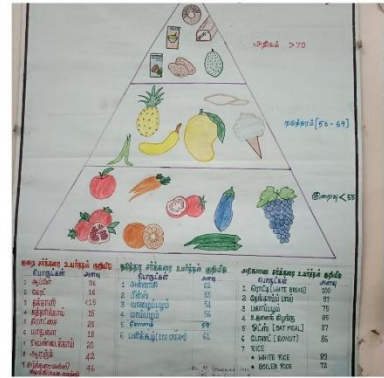 அதிகம் >70
நடுத்தரம் [56-69]
குறைவு <55
குறை சர்க்கரை உயர்த்தல் குறியீடு
பொருட்கள் அளவு
1 ஆப்பிள் 36
2 கேரட் 16
3 தக்காளி <15
4 கத்தரிக்காய் 15
5 திராட்சை 25
6 மாதுளை 18
7 வெண்டைக்காய் 20
8 ஆரஞ்சு 42
46
நடுத்தர சர்க்கரை உயர்த்தல் குறியீடு
பொருட்கள் அளவு
1 அன்னாசி 62
2 பீன்ஸ் 55
3 வாழைப்பழம் 51
4 மாம்பழம் 56
5 59
6 பனிக்கூழ் (ICE CREAM) 61
அதிகமான சர்க்கரை உயர்த்தல் குறியீடு
பொருட்கள் அளவு
1 ரொட்டி (WHITE BREAD) 100
2 தேங்காய் பால் 97
3 பலாப்பழம் 75
4 உருளைக் கிழங்கு 85
5 ஓட்ஸ் (OAT MEAL) 87
6 டோனட் (DONUT) 86
7 RICE
* WHITE RICE 89
* BOILED RICE 72